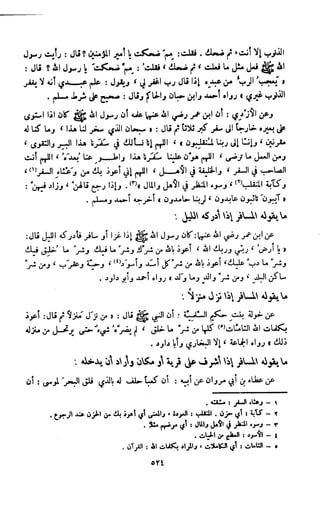 الذنوب إلا أنت، ثم ضحك. فقلت: مم ضحكت يا أمير المؤمنين؟ قال: رأيت رسول
الله ﷺ فعل مثل ما فعلت، ثم ضحك، فقلت: مم ضحكت يا رسول الله؟ قال:
« يعجب الرب من عبده إذا قال رب اغفر لي، ويقول: علم عبدي أنه لا يغفر
الذنوب غيري» رواه أحمد وابن حبان والحاكم وقال: صحيح على شرط مسلم.
وعن ابن عمر رضي الله عنهما أن رسول الله ﷺ كان إذا استوى
على بعيره خارجاً إلى سفر كبر ثلاثاً ثم قال: « سبحان الذي سخر لنا هذا، وما كنا له
مقرنين، وإنا إلى ربنا لمنقلبون، اللهم إنا نسألك في سفرنا هذا البر والتقوى،
ومن العمل ما ترضى، اللهم هون علينا سفرنا هذا واطو عنا بعده، اللهم أنت
الصاحب في السفر، والخليفة في الأهل، اللهم إني أعوذ بك من وعثاء السفر(١)،
وكآبة المنقلب(٢) وسوء المنظر في الأهل والمال(٣)». وإذا رجع قالهن، وزاد فيهن:
« آيبون تائبون عابدون لربنا حامدون» أخرجه أحمد ومسلم.
ما يقوله المسافر إذا أدركه الليل:
عن ابن عمر رضي الله عنهما قال: كان رسول الله ﷺ إذا غزا أو سافر فأدركه الليل قال:
« يا أرض، ربي وربك الله، أعوذ بالله من شرك وشر ما فيك وشر ما خلق فيك
وشر ما دب عليك، أعوذ بالله من شر كل أسد وأسود(٤)، وحية وعقرب، ومن شر
ساكن البلد، ومن شر والد وما ولد» رواه أحمد وأبو داود.
ما يقوله المسافر إذا نزل منزلاً:
عن خولة بنت حكيم السلمية: أن النبي ﷺ قال: « من نزل منزلاً ثم قال: أعوذ
بكلمات الله التامات(٥) كلها من شر ما خلق، لم يضره شيء حتى يرتحل من منزله
ذلك» رواه الجماعة إلا البخاري وأبا داود.
ما يقوله المسافر إذا أشرف على قرية أو مكان وأراد أن يدخله:
عن عطاء بن أبي مروان عن أبيه: أن كعباً حلف له بالذي فلق البحر لموسى: أن
١ - وعثاء السفر: مشقته.
٢ - كآبة: أي حزن. المنقلب: العودة، والمعنى أي أعوذ بك من الحزن عند الرجوع.
٣ - وسوء المنظر في الأهل والمال: أي مرضهم مثلاً.
٤ - الأسود: العظيم من الحيات.
٥ - التامات: أي الكاملات، والمراد بكلمات الله: القرآن.
٥٢٤